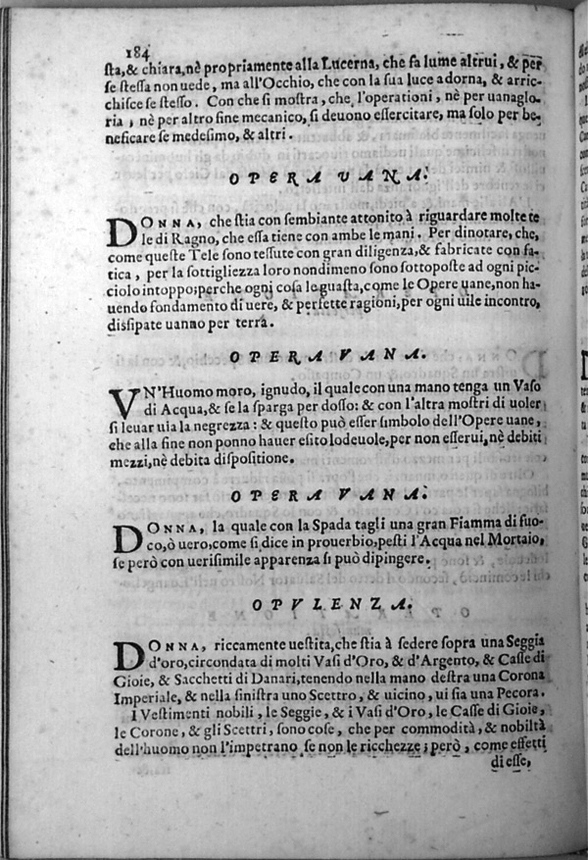 184
ſta,& chiara,nè propriamente alla Lucerna, che fa lume altrui, & per
ſe ſteſſa non uede, ma all'Occhio, che con la ſua luce adorna, & arric-
chiſce ſe ſteſſo. Con che ſi moſtra, che l'operationi, nè per uanaglo-
ria, nè per altro fine mecanico, ſi deuono eſſercitare, ma ſolo per be-
neficare ſe medeſimo, & altri.
OPERA UANA.
DONNA, che ſtia con ſembiante attonito à riguardare molte te
le di Ragno, che eſſa tiene con ambe le mani. Per dinotare, che,
come queſte Tele ſono teſſute con gran diligenza,& fabricate con fa-
tica, per la ſottigliezza loro nondimeno ſono ſottopoſte ad ogni pic-
ciolo intoppo;perche ogni coſa le guaſta,come le Opere uane,non ha-
uendo fondamento di uere, & perfette ragioni,per ogni uile incontro,
diſſipate uanno per terra.
OPERA VANA.
VN'Huomo moro, ignudo, il quale con una mano tenga un Vaſo
di Acqua,& ſe la ſparga per doſſo: & con l'altra moſtri di uoler
ſi leuar uia la negrezza: & queſto può eſſer ſimbolo dell'Opere uane,
che alla fine non ponno hauer eſito lodeuole,per non eſſerui,nè debiti
mezzi,nè debita diſpoſitione.
OPERA VANA.
DONNA, la quale con la Spada tagli una gran Fiamma di fuo-
co,ò uero,come ſi dice in prouerbio,peſti l'Acqua nel Mortaio,
ſe però con ueriſimile apparenza ſi può dipingere.
OPVLENZA.
DONNA, riccamente ueſtita,che ſtia à ſedere ſopra una Seggia
d'oro,circondata di molti Vaſi d'Oro, & d'Argento, & Caſſe di
Gioie, & Sacchetti di Danari,tenendo nella mano deſtra una Corona
Imperiale, & nella ſiniſtra uno Scettro, & uicino, ui ſia una Pecora.
I Veſtimenti nobili, le Seggie, & i Vaſi d'Oro, le Caſſe di Gioie,
le Corone, & gli Scettri, ſono coſe, che per commodità, & nobiltà
dell'huomo non l'impetrano ſe non le ricchezze; però, come effetti
di eſſe,